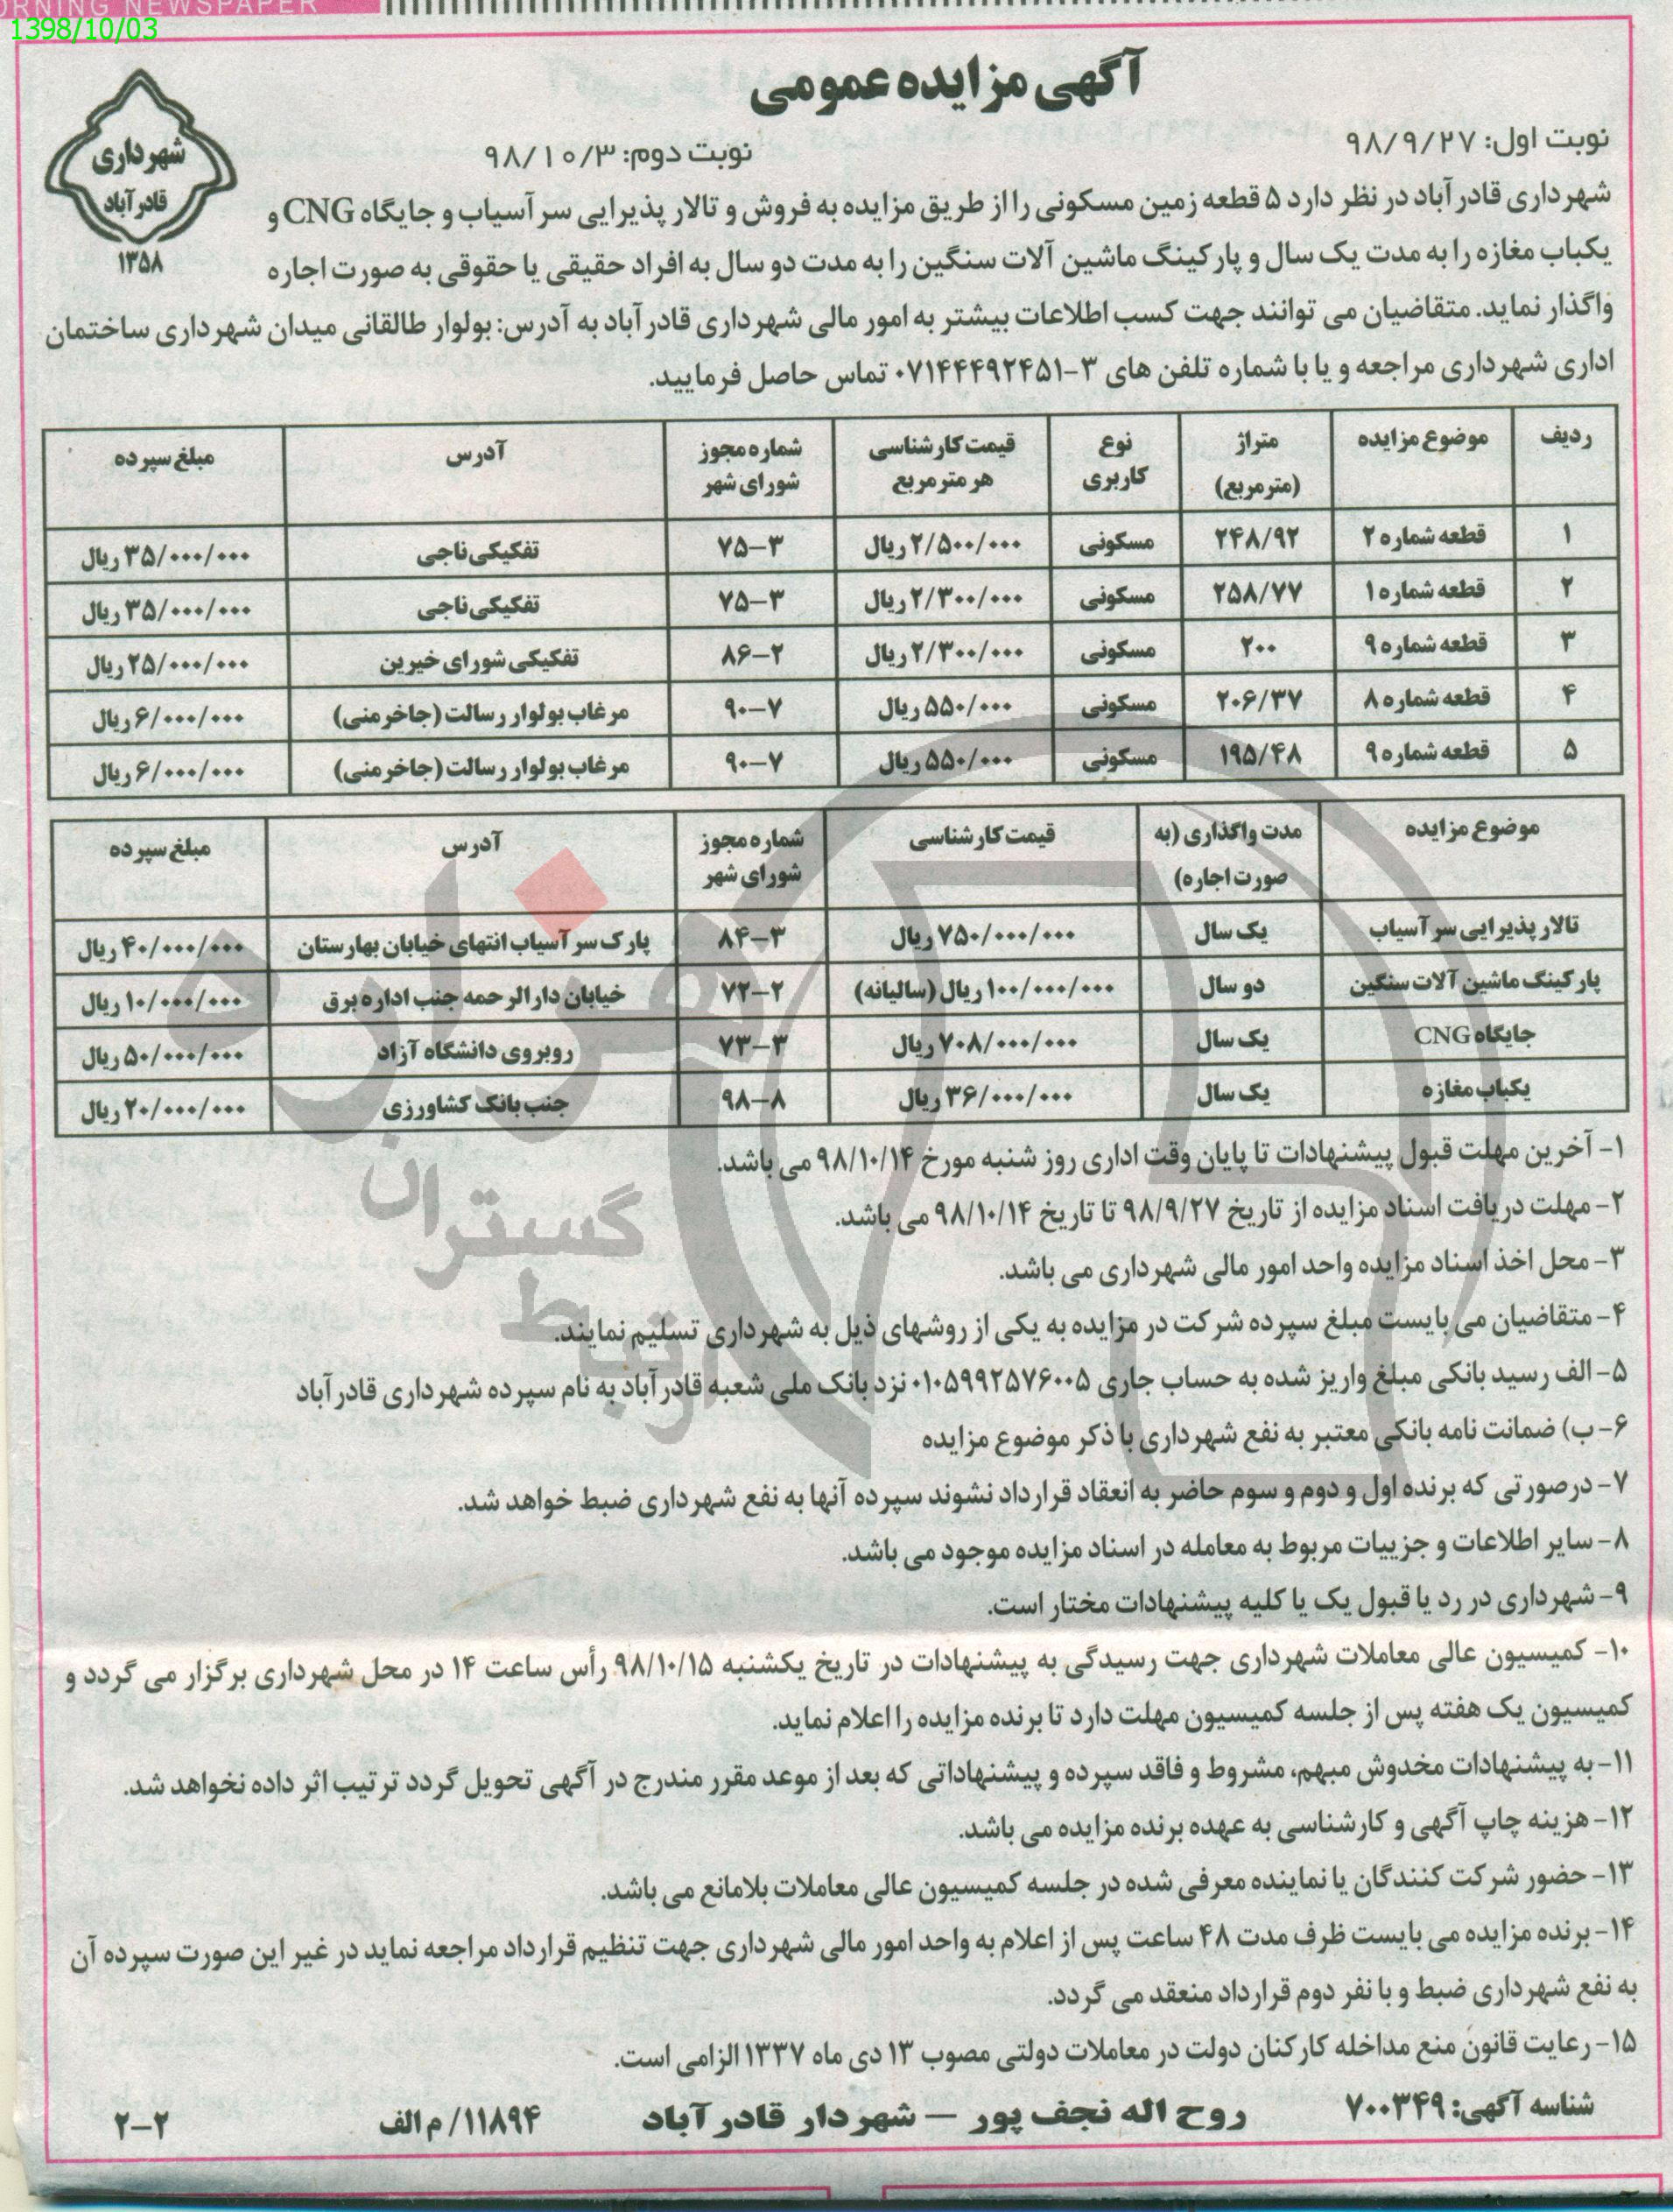 ORNING NEWSPAPER
1398/10/03
آگهی مزایده عمومی
شهرداری
قادرآباد
۱۳۵۸
نوبت اول: ۹۸/۹/۲۷
نوبت دوم: ۹۸/۱۰/۳
شهرداری قادرآباد در نظر دارد ۵ قطعه زمین مسکونی را از طریق مزایده به فروش و تالار پذیرایی سرآسیاب و جایگاه CNG و
یکباب مغازه را به مدت یک سال و پارکینگ ماشین آلات سنگین را به مدت دو سال به افراد حقیقی یا حقوقی به صورت اجاره
واگذار نماید. متقاضیان می توانند جهت کسب اطلاعات بیشتر به امور مالی شهرداری قادرآباد به آدرس: بولوار طالقانی میدان شهرداری ساختمان
اداری شهرداری مراجعه و یا با شماره تلفن های ۳-۰۷۱۴۴۴۹۲۴۵۱ تماس حاصل فرمایید.
ردیف موضوع مزایده متراژ (مترمربع) نوع کاربری قیمت کارشناسی هر مترمربع شماره مجوز شورای شهر آدرس مبلغ سپرده
۱ قطعه شماره ۲ ۲۴۸/۹۲ مسکونی ۲/۵۰۰/۰۰۰ ریال ۷۵-۳ تفکیکی ناجی ۳۵/۰۰۰/۰۰۰ ریال
۲ قطعه شماره ۱ ۲۵۸/۷۷ مسکونی ۲/۳۰۰/۰۰۰ ریال ۷۵-۳ تفکیکی ناجی ۳۵/۰۰۰/۰۰۰ ریال
۳ قطعه شماره ۹ ۲۰۰ مسکونی ۲/۳۰۰/۰۰۰ ریال ۸۶-۲ تفکیکی شورای خیرین ۲۵/۰۰۰/۰۰۰ ریال
۴ قطعه شماره ۸ ۲۰۶/۳۷ مسکونی ۵۵۰/۰۰۰ ریال ۹۰-۷ مرغاب بولوار رسالت (جاخرمنی) ۶/۰۰۰/۰۰۰ ریال
۵ قطعه شماره ۹ ۱۹۵/۴۸ مسکونی ۵۵۰/۰۰۰ ریال ۹۰-۷ مرغاب بولوار رسالت (جاخرمنی) ۶/۰۰۰/۰۰۰ ریال
موضوع مزایده مدت واگذاری (به صورت اجاره) قیمت کارشناسی شماره مجوز شورای شهر آدرس مبلغ سپرده
تالار پذیرایی سرآسیاب یک سال ۷۵۰/۰۰۰/۰۰۰ ریال ۸۴-۳ پارک سرآسیاب انتهای خیابان بهارستان ۴۰/۰۰۰/۰۰۰ ریال
پارکینگ ماشین آلات سنگین دو سال ۱۰۰/۰۰۰/۰۰۰ ریال (سالیانه) ۷۲-۲ خیابان دارالرحمه جنب اداره برق ۱۰/۰۰۰/۰۰۰ ریال
جایگاه CNG یک سال ۷۰۸/۰۰۰/۰۰۰ ریال ۷۳-۳ روبروی دانشگاه آزاد ۵۰/۰۰۰/۰۰۰ ریال
یکباب مغازه یک سال ۳۶/۰۰۰/۰۰۰ ریال ۹۸-۸ جنب بانک کشاورزی ۲۰/۰۰۰/۰۰۰ ریال
هزاره
گستران
ارتباط
۱- آخرین مهلت قبول پیشنهادات تا پایان وقت اداری روز شنبه مورخ ۹۸/۱۰/۱۴ می باشد.
۲- مهلت دریافت اسناد مزایده از تاریخ ۹۸/۹/۲۷ تا تاریخ ۹۸/۱۰/۱۴ می باشد.
۳- محل اخذ اسناد مزایده واحد امور مالی شهرداری می باشد.
۴- متقاضیان می بایست مبلغ سپرده شرکت در مزایده به یکی از روشهای ذیل به شهرداری تسلیم نمایند.
۵- الف رسید بانکی مبلغ واریز شده به حساب جاری ۰۱۰۵۹۹۲۵۷۶۰۰۵ نزد بانک ملی شعبه قادرآباد به نام سپرده شهرداری قادرآباد
۶- ب) ضمانت نامه بانکی معتبر به نفع شهرداری با ذکر موضوع مزایده
۷- درصورتی که برنده اول و دوم و سوم حاضر به انعقاد قرارداد نشوند سپرده آنها به نفع شهرداری ضبط خواهد شد.
۸- سایر اطلاعات و جزییات مربوط به معامله در اسناد مزایده موجود می باشد.
۹- شهرداری در رد یا قبول یک یا کلیه پیشنهادات مختار است.
۱۰- کمیسیون عالی معاملات شهرداری جهت رسیدگی به پیشنهادات در تاریخ یکشنبه ۹۸/۱۰/۱۵ رأس ساعت ۱۴ در محل شهرداری برگزار می گردد و
کمیسیون یک هفته پس از جلسه کمیسیون مهلت دارد تا برنده مزایده را اعلام نماید.
۱۱- به پیشنهادات مخدوش مبهم، مشروط و فاقد سپرده و پیشنهاداتی که بعد از موعد مقرر مندرج در آگهی تحویل گردد ترتیب اثر داده نخواهد شد.
۱۲- هزینه چاپ آگهی و کارشناسی به عهده برنده مزایده می باشد.
۱۳- حضور شرکت کنندگان یا نماینده معرفی شده در جلسه کمیسیون عالی معاملات بلامانع می باشد.
۱۴- برنده مزایده می بایست ظرف مدت ۴۸ ساعت پس از اعلام به واحد امور مالی شهرداری جهت تنظیم قرارداد مراجعه نماید در غیر این صورت سپرده آن
به نفع شهرداری ضبط و با نفر دوم قرارداد منعقد می گردد.
۱۵- رعایت قانون منع مداخله کارکنان دولت در معاملات دولتی مصوب ۱۳ دی ماه ۱۳۳۷ الزامی است.
شناسه آگهی: ۷۰۰۳۴۹
روح اله نجف پور – شهردار قادرآباد
۱۱۸۹۴/ م الف
۲-۲